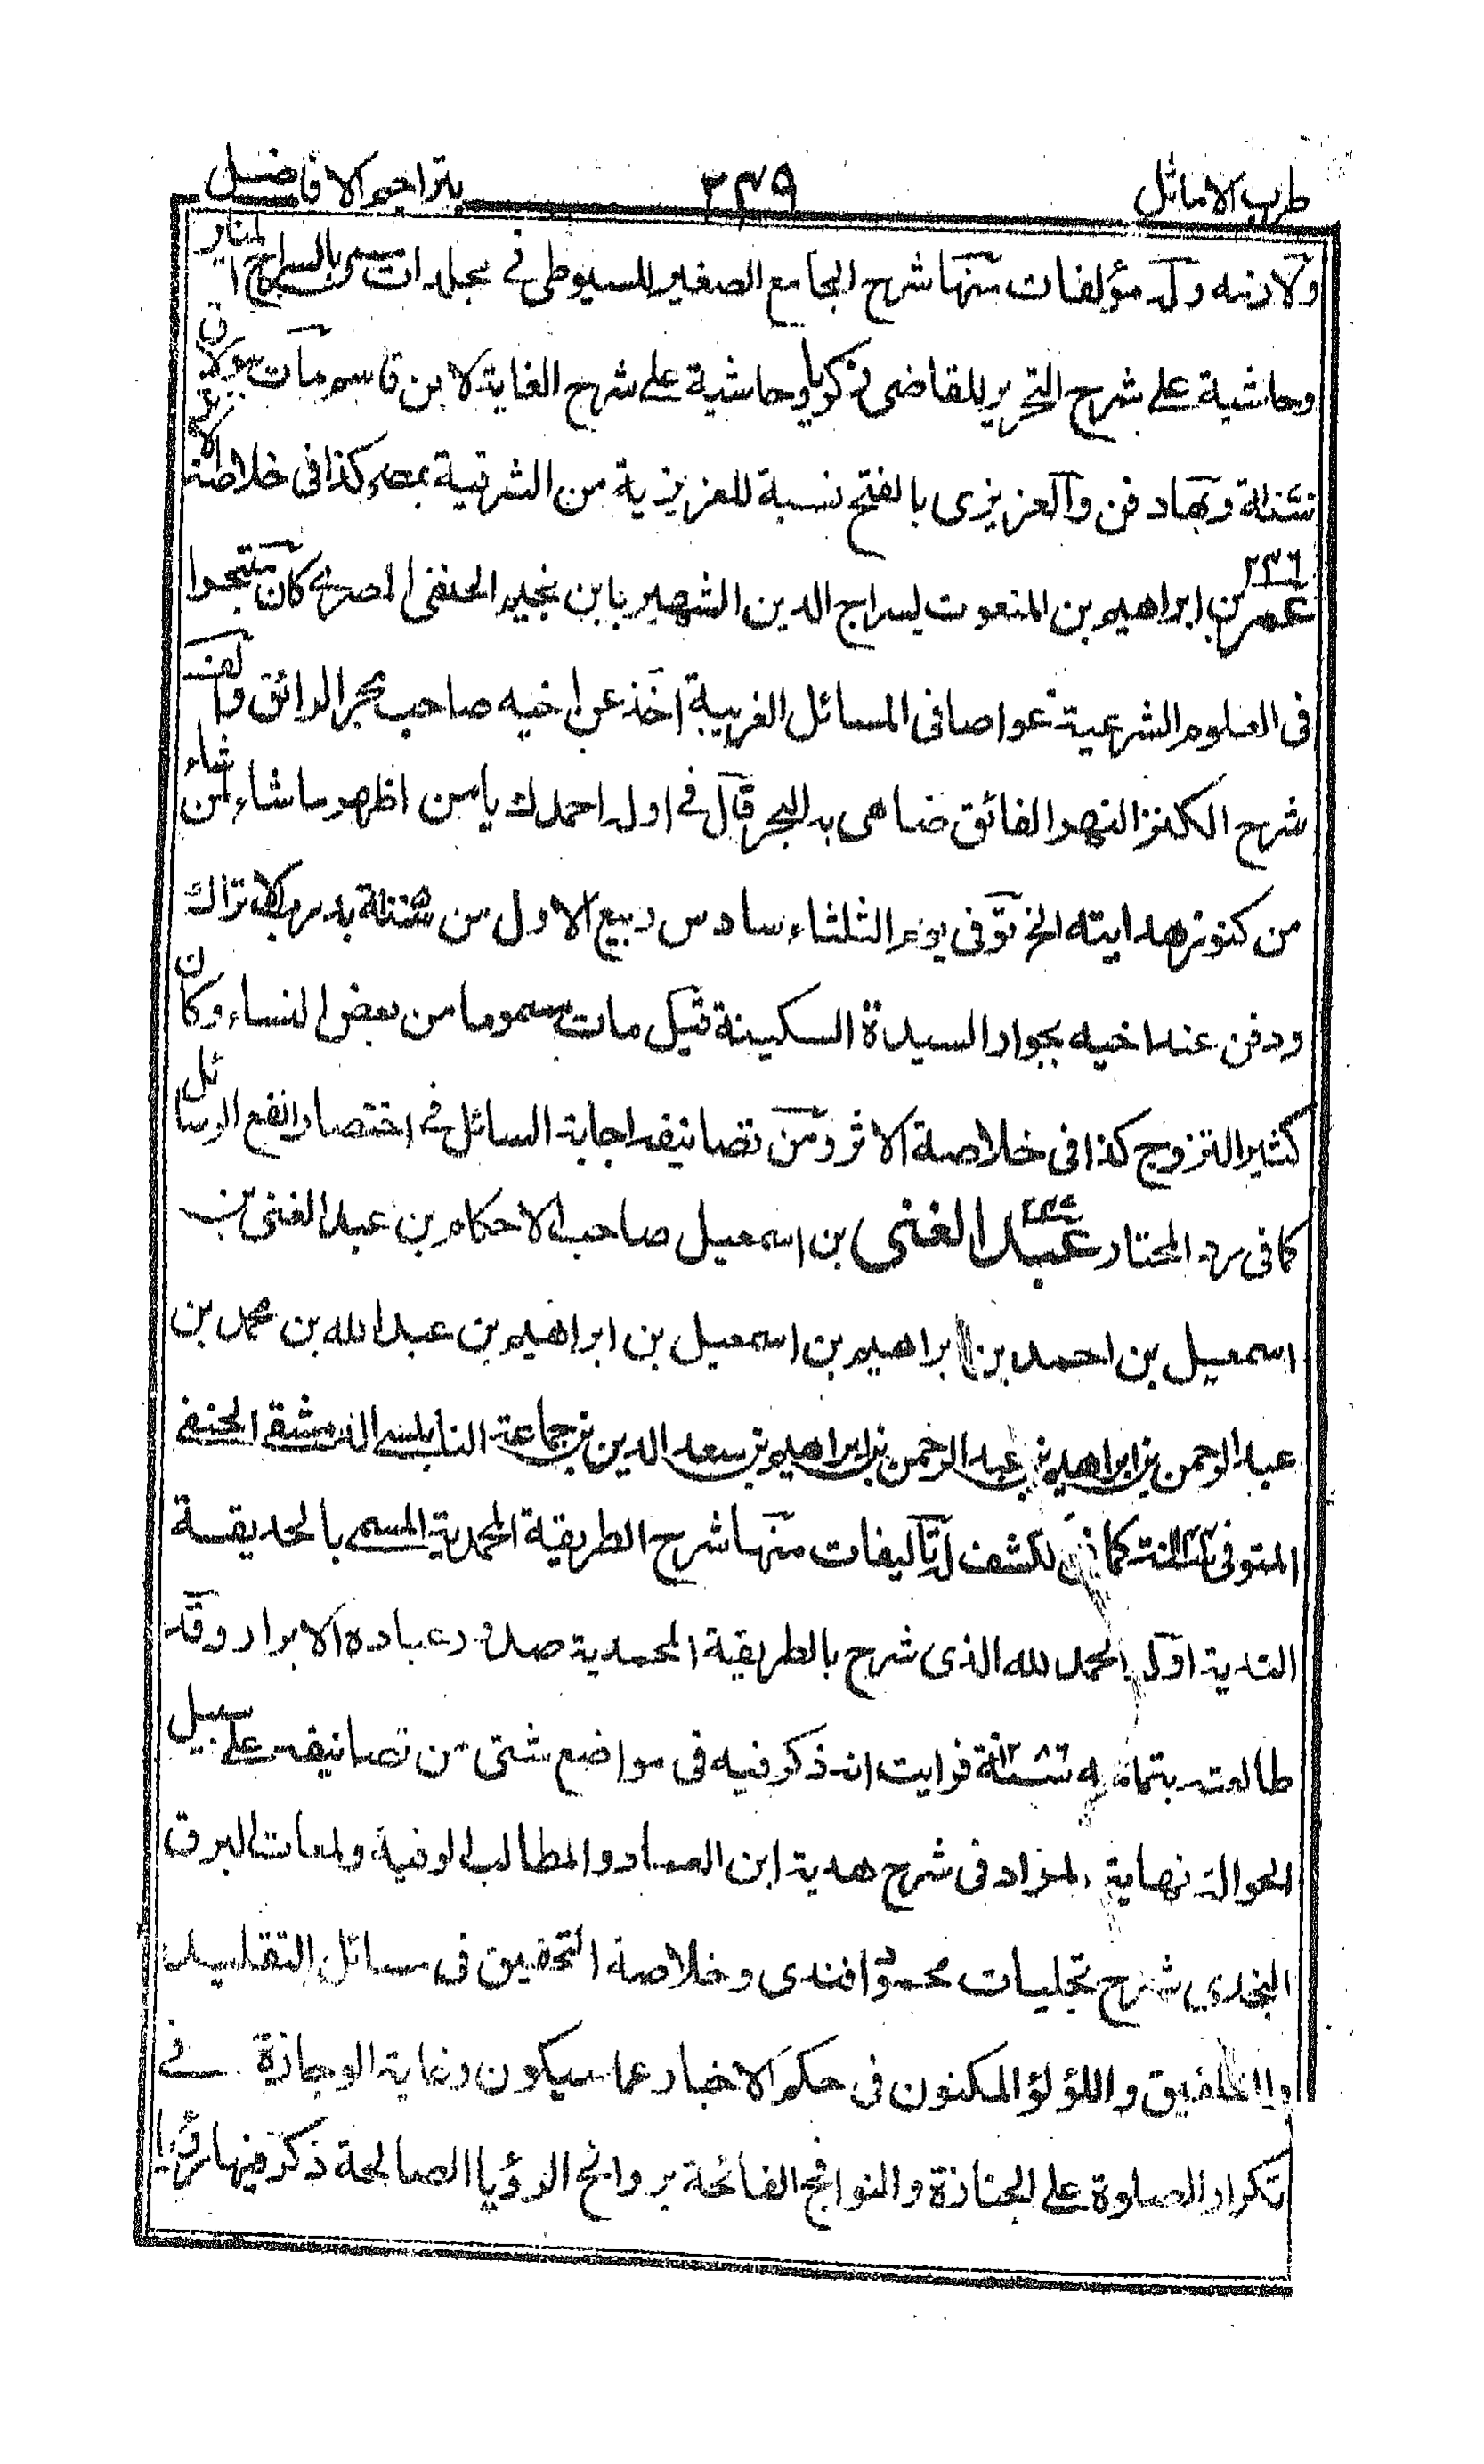 طرب الاماثل ٢٣٩ بتراجم الافاضل
ولازمه وله مؤلفات منها شرح الجامع الصغير للسيوطى فى مجلدات سمى بالسراج المنير
وحاشية على شرح التحرير للقاضى زكريا وحاشية على شرح الغاية لابن قاسم مات ببولاق
وبها دفن والعزيزى بالفتح نسبة للعزيزية من الشرقية بمصر كذا فى خلاصة الاثر
٢٣٦
عمر بن ابراهيم بن المنعوت بسراج الدين الشهير بابن نجيم الحنفى المصرى كان متبحرا
فى العلوم الشرعية غواصا فى المسائل الغريبة اخذ عن اخيه صاحب بحر الرائق والف
شرح الكنز النهر الفائق ضاهى به البحر قال فى اوله احمدك يا من اظهر ما شاء لمن شاء
من كنوز هدايته الخ توفى يوم الثلثاء سادس ربيع الاول من سنة بدرب الاتراك
ودفن عند اخيه بجوار السيدة السكينة قيل مات مسموما من بعض النساء وكان
كثير التزوج كذا فى خلاصة الاثر ومن تصانيفه اجابة السائل فى اختصار انفع الوسائل
كما فى رد المحتار عبد الغنى بن اسمعيل صاحب الاحكام بن عبد الغنى بن
اسمعيل بن احمد بن ابراهيم بن اسمعيل بن ابراهيم بن عبد الله بن محمد بن
عبد الرحمن بن ابراهيم بن عبد الرحمن بن ابراهيم بن سعد الدين بن جماعة النابلسى الدمشقى الحنفى
المتوفى كما فى الكشف له تاليفات منها شرح الطريقة المحمدية المسمى بالحديقة
الندية اوله الحمد لله الذى شرح بالطريقة المحمدية صدور عباده الابرار وقد
طالعته بتمامه سنة ١٢٨٦ فرايت انه ذكر فيه فى مواضع شتى من تصانيفه على سبيل
الحوالة نهاية المراد فى شرح هدية ابن العماد والمطالب الوفية ولمعات البرق
النجدى شرح تجليات محمود افندى وخلاصة التحقيق فى مسائل التقليد
والتلفيق واللؤلؤ المكنون فى حكم الاخبار عما سيكون وغاية الوجازة فى
تكرار الصلوة على الجنازة والنوافج الفائحة بروائح الرؤيا الصالحة ذكر فيها رؤيا